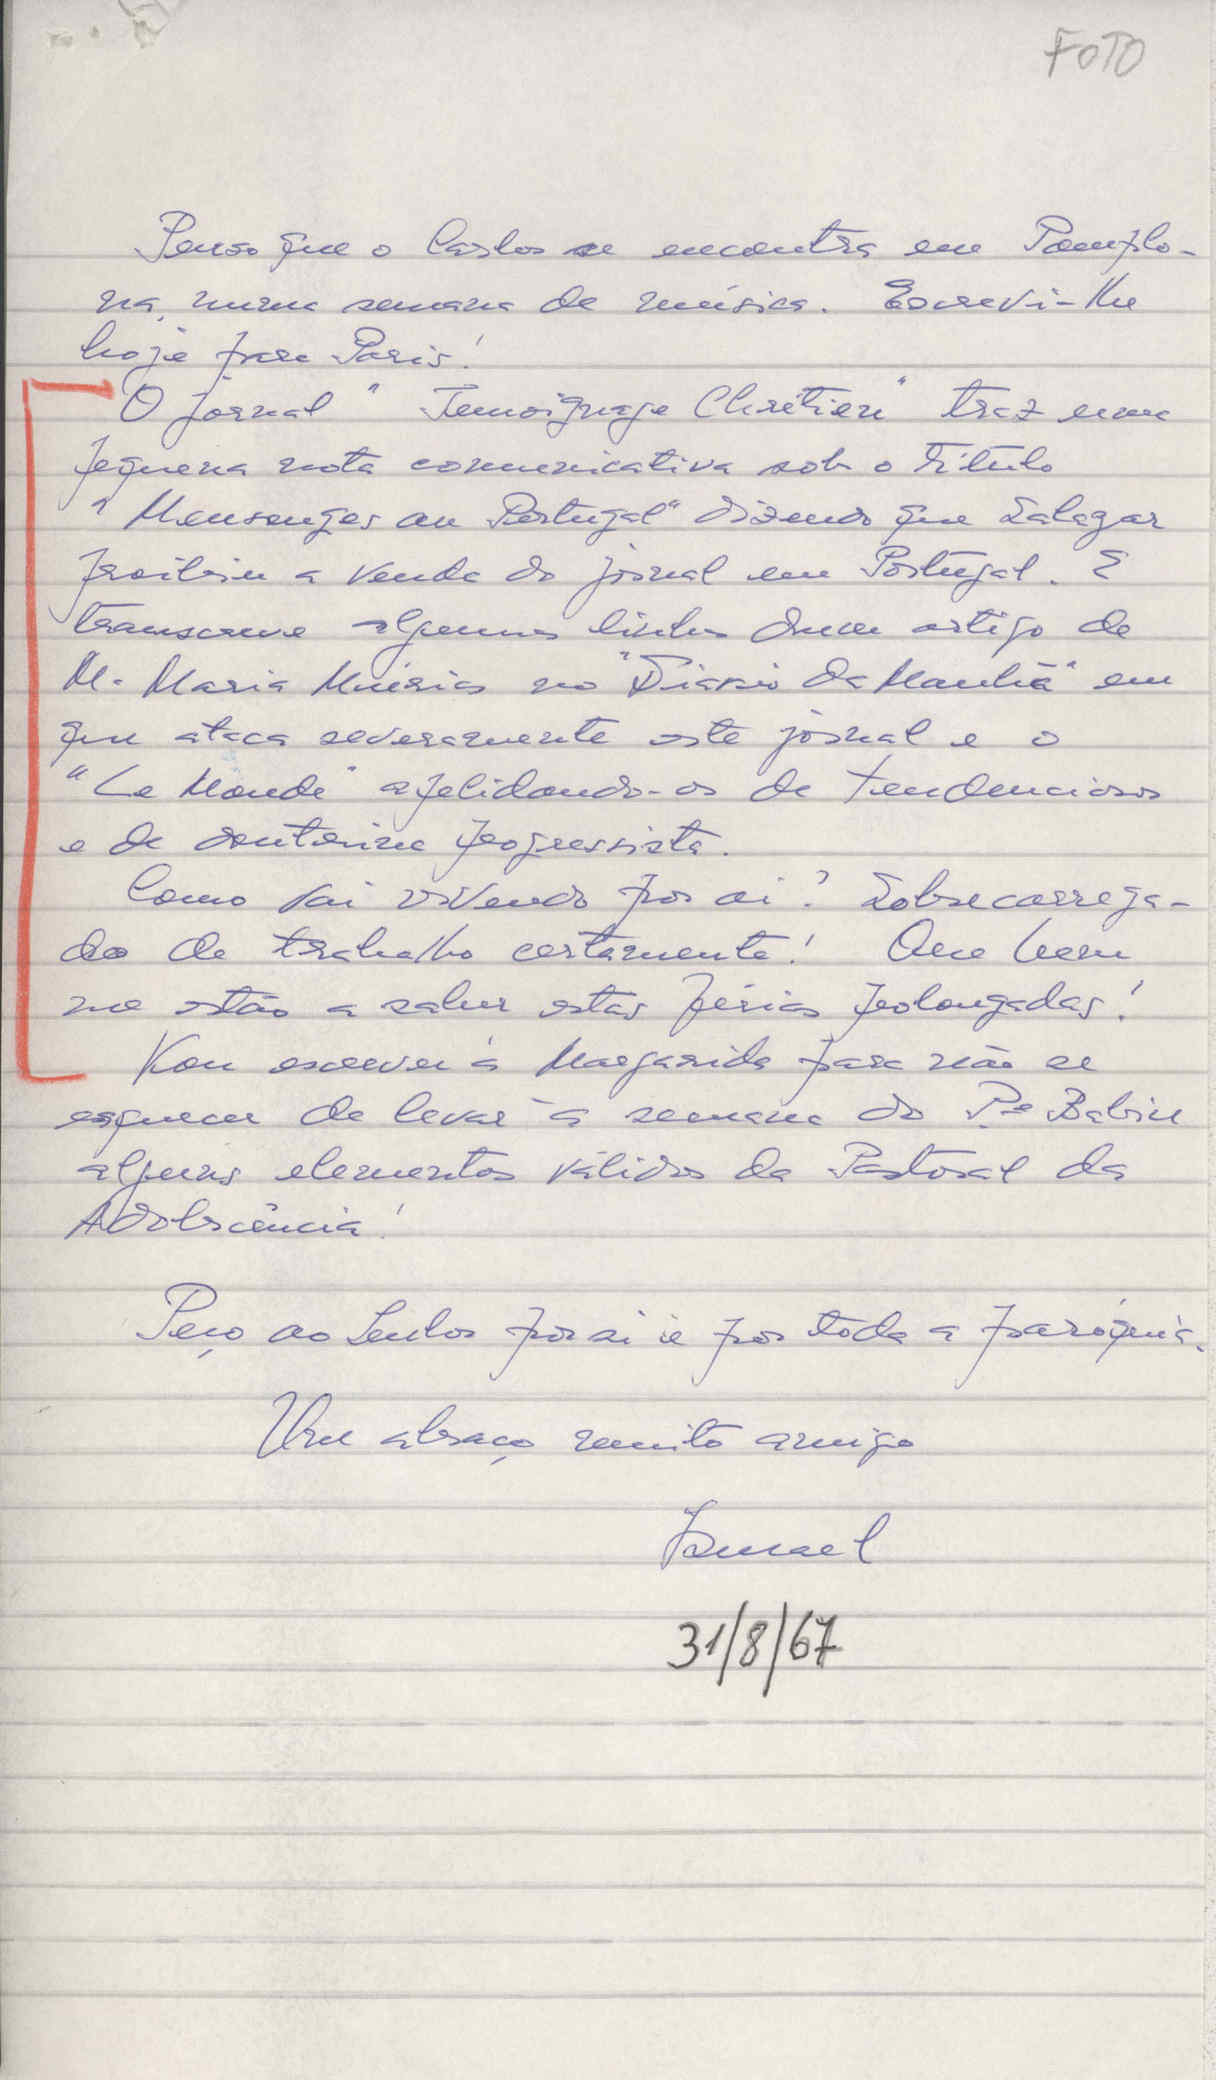 FOTO
Penso que o Carlos se encontra em Pamplo-
na, numa semana de música. Escrevi-lhe
hoje para Paris!
O jornal "Temoignage Chrétien" traz uma
pequena nota comunicativa sob o título
"Mensonges au Portugal" dizendo que Salazar
proibiu a venda do jornal em Portugal. E
transcreve algumas linhas dum artigo de
M. Maria Múrias no "Diário da Manhã" em
que ataca severamente este jornal e o
"Le Monde" apelidando-os de tendenciosos
e de doutrina progressista.
Como vai vivendo por aí? Sobrecarrega-
do de trabalho certamente! Que bem
me estão a saber estas férias prolongadas!
Vou escrever à Margarida para não se
esquecer de levar à semana do Pe Babin
alguns elementos válidos da Pastoral da
Adolscência!
Peço ao Senhor por si e por toda a paróquia.
Um abraço muito amigo
Ismael
31/8/67